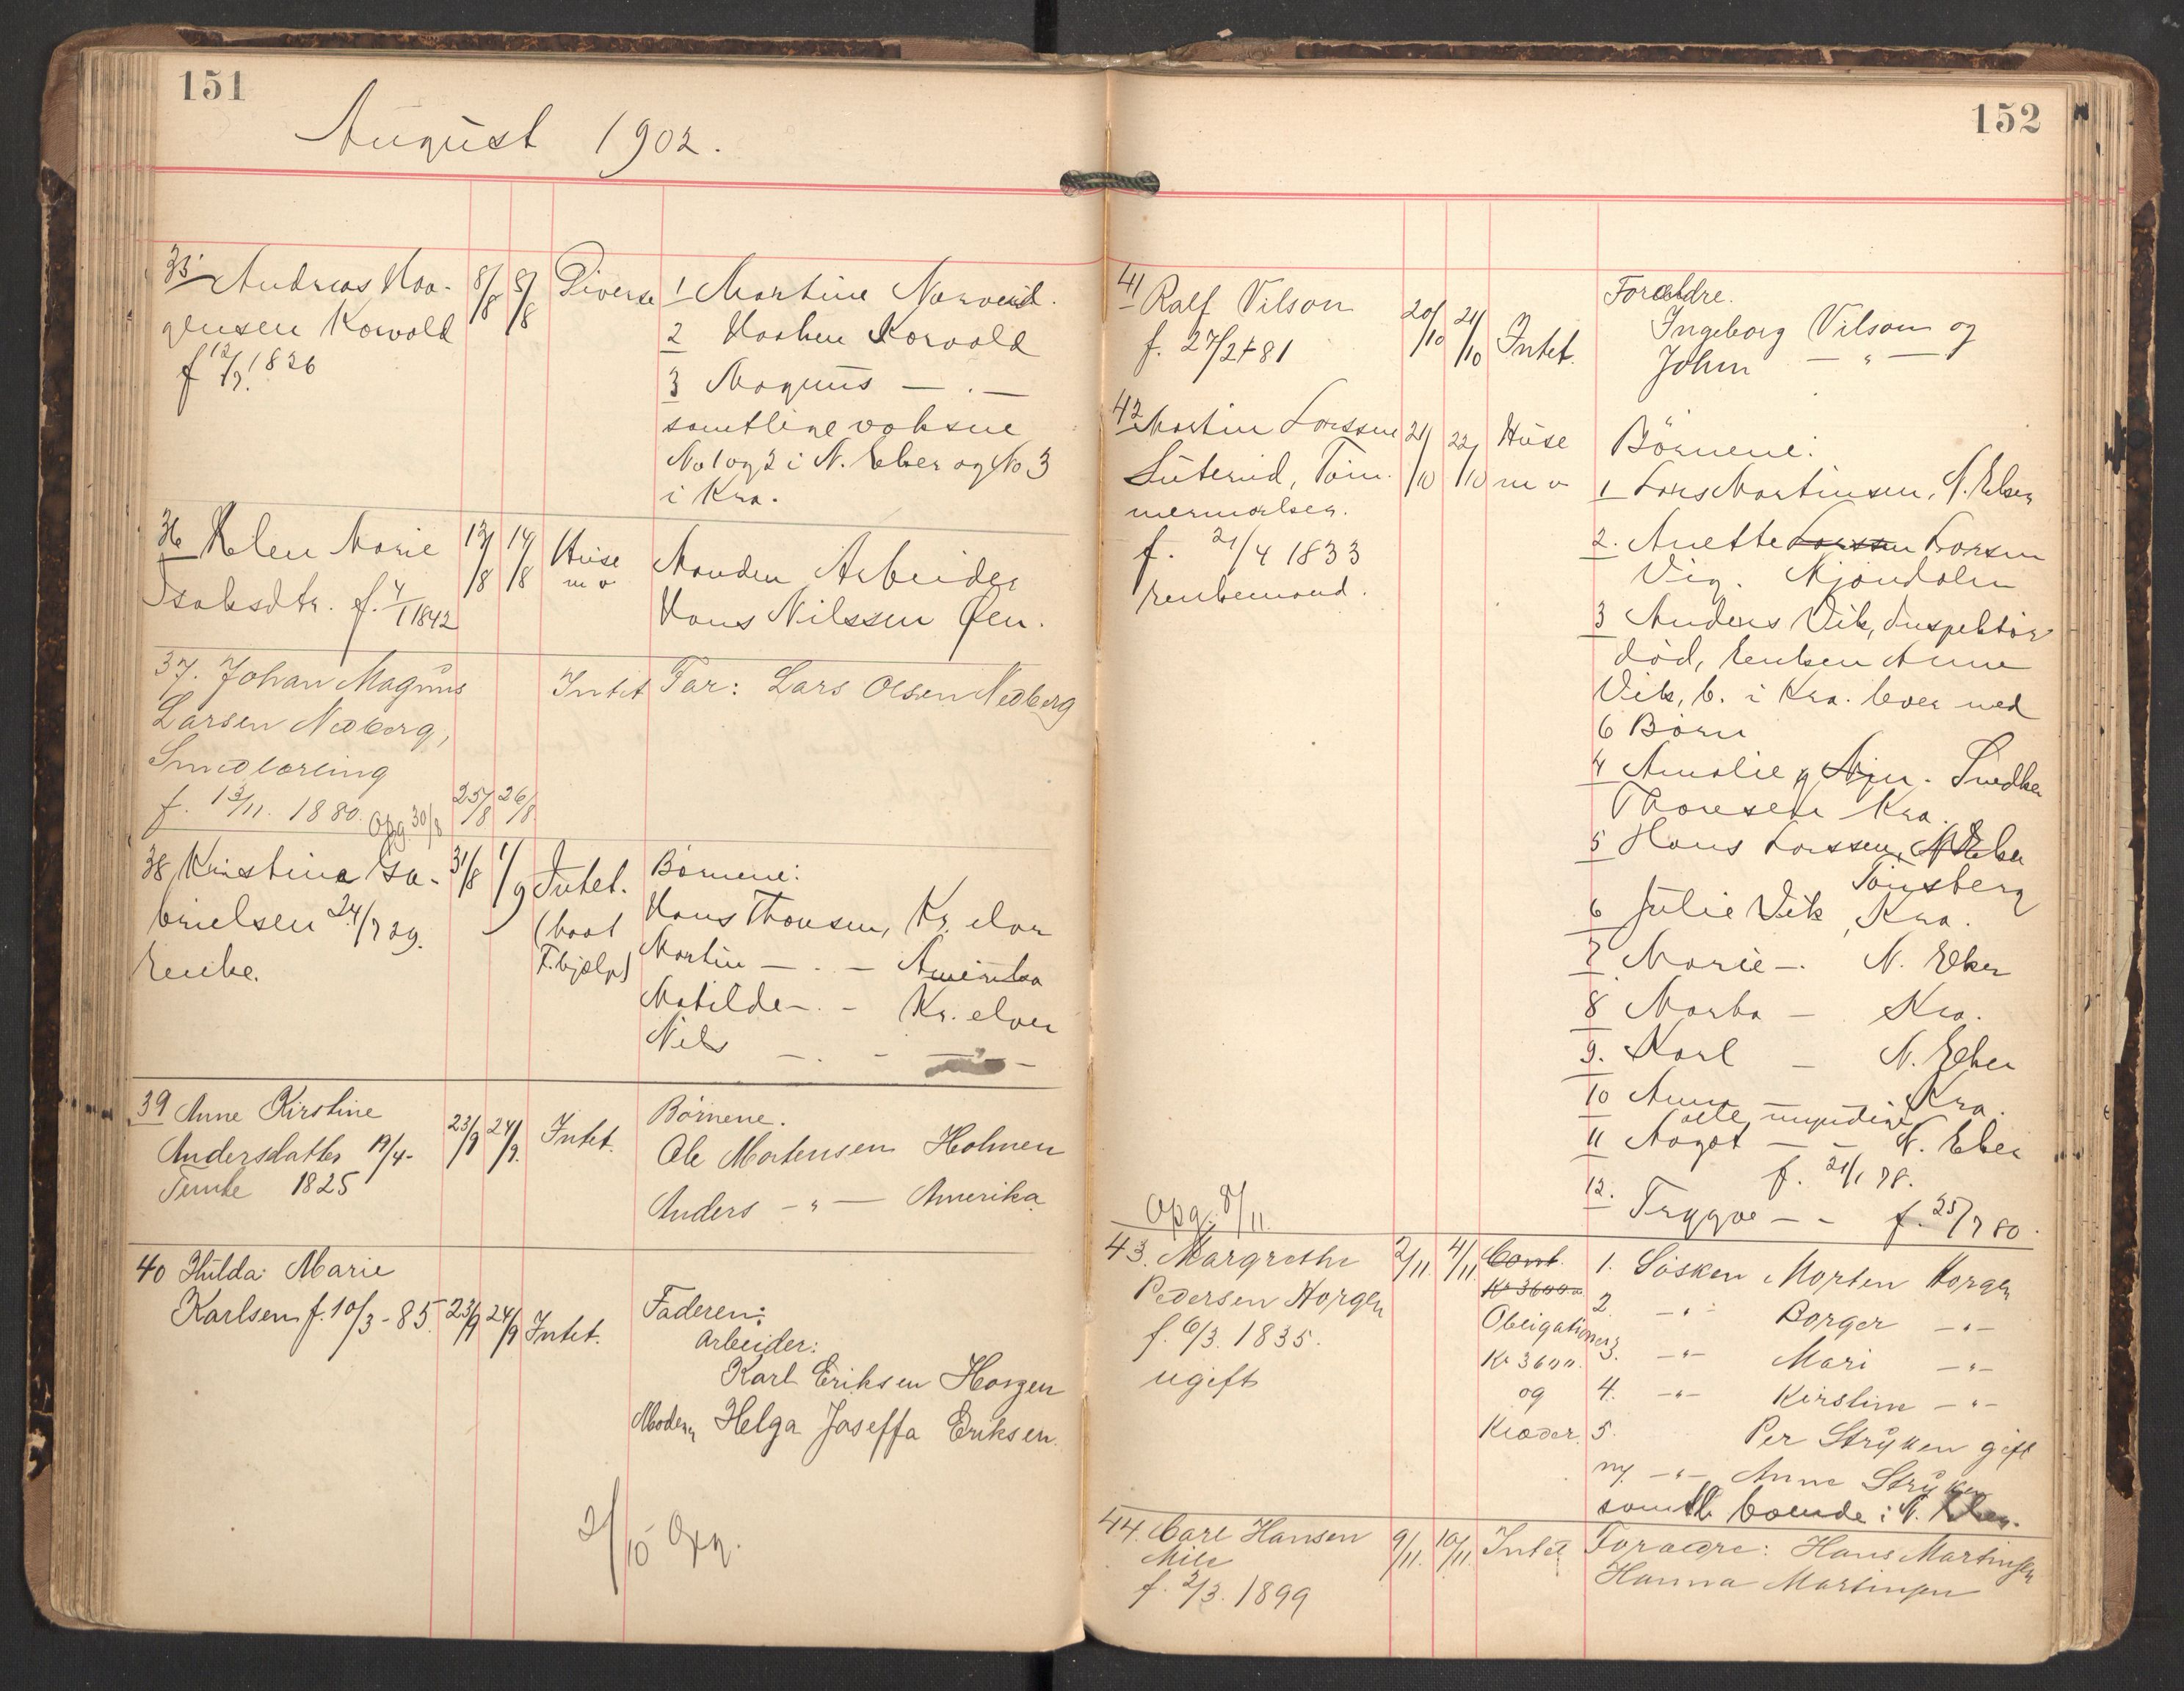 151
August 1902.
35 Andreas Haa- 8/8 8/8 Diverse 1 Martine Narverud.
gensen Korvold 2 Haaken Korvold
f 12/12. 1826 3 Magnus — . —
samtlige voksne
No 1 og 2 i N. Eker og No 3
i Kra.
36 Helen Marie 13/8 14/8 Huse Manden Arbeider
Isaksdtr. f. 4/1 1842 m v Hans Nilssen Øen.
37. Johan Magnus Intet Far: Lars Olsen Nedberg
Larsen Nedberg,
Smedlærling
f. 13/11. 1880. Opg 30/8 25/8 26/8
38 Kristine Ga- 31/8 1/9 Intet. Børnene:
brielsen 24/7 29. (havt Hans Thonsen, Kr. elva
Enke. F.hjælp) Martin — . — Amerika
Matilde — . - Kr. elven
Nils — . - — " —
39 Anne Kirstine 23/9 24/9. Intet. Børnene.
Andersdatter 19/4- Ole Mortensen Holmen
Temte 1825 Anders — " — Amerika
40 Hulda Marie
Karlsen f. 10/3-85. 23/9 24/9 Intet. Faderen:
Arbeider:
Karl Eriksen Horgen
Moderen Helga Joseffa Eriksen.
2/10 Opg.
152
41 Ralf Vilson 20/10 21/10 Intet. Forældre.
f. 27/2 +81 Ingeborg Vilson og
John — " —
42 Martin Larssen 21/10 22/10 Huse Børnene:
Suterud, Tøm- m v 1 Lars Martinsen, N. Eker
mermælser.
f. 21/4 1833
Enkemand.
2. Anette Larssen Larsen
Vig. Mjøndalen
3 Anders Vik, Inspektør
død, Enken Anne
Vik, b. i Kra. lever med
6 Børn
4 Amalie g Snedker
Thoresen Kra.
5 Hans Larssen, N Eker
Tønsberg
6 Julie Vik, Kra.
7 Marie — . N. Eker
8 Marta — Kra.
9. Karl — N. Eker
10 Anna — Kra.
alle myndige
11 Aagot — — N. Eker
f. 21/1 78.
12. Tryggve — - f. 25/7 80.
Opg. 8/11.
43. Margrethe 2/11. 4/11. Cont. 1. Søsken Morten Horgen
Pedersen Horgen Kr 3600 2. — " — Borger — " —
f. 6/3. 1835. Obligationer 3. — " — Mari — " —
ugift Kr 3600. 4. — " — Kirstine — " —
og 5. Per Stryken gift
Klæder. m. — " — Anne Stryken
samtl boende i N. Eker.
44. Carl Hansen 9/11. 10/11. Intet Forældre: Hans Martinsen
Mile Hanna Martinsen
f. 2/3. 1899